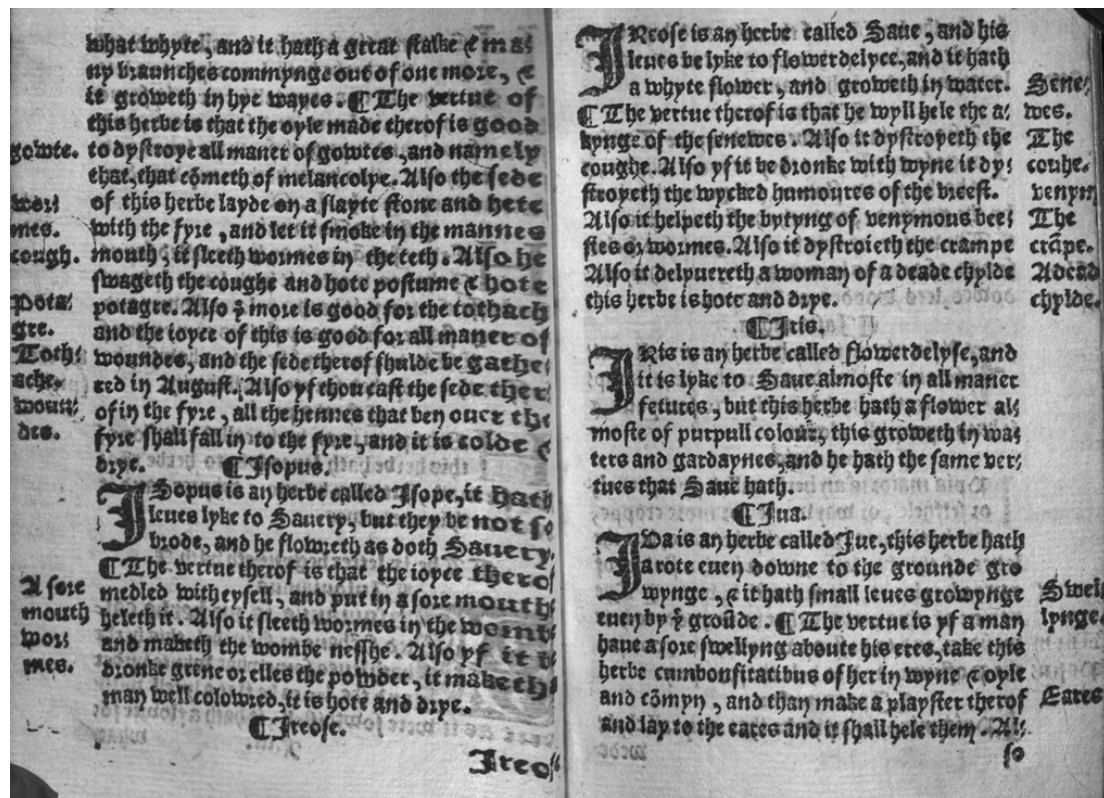 what whyte, and it hath a great stalke & ma⸗
ny braunches commynge out of one more, &
it groweth in hye wayes. ¶ The vertue of
this herbe is that the oyle made therof is good
gowte. to dystroye all maner of gowtes, and namely
that, that cōmeth of melancolye. Also the sede
wor⸗ of this herbe layde on a slayte stone and hete
mes. with the fyre, and let it smoke in the mannes
cough. mouth, it sleeth wormes in the teth. Also he
swageth the coughe and hote postume & hote
Pota⸗ potagre. Also ẙ more is good for the tothach
gre. and the ioyce of this is good for all maner of
Toth⸗ woundes, and the sede therof shulde be gathe⸗
ache. red in August. Also yf thou cast the sede ther
woun⸗ of in the fyre, all the hennes that ben ouer the
des. fyre shall fall in to the fyre, and it is colde &
drye. ¶ Isopus.
ISopus is an herbe called Isope, it hath
leues lyke to Sauery, but they be not so
brode, and he flowreth as doth Sauery.
¶ The vertue therof is that the ioyce therof
A sore medled with eysell, and put in a sore mouth
mouth heleth it. Also it sleeth wormes in the wombe
wor⸗ and maketh the wombe nesshe. Also yf it be
mes. dronke grene or elles the powder, it maketh
man well colowred, it is hote and drye.
¶ Ireose.
Ireos⸗
IReose is an herbe called Saue, and his
leues be lyke to flowerdelyce, and it hath
a whyte flower, and groweth in water. Sene⸗
¶ The vertue therof is that he wyll hele the a⸗ wes.
kynge of the senewes. Also it dystroyeth the The
coughe. Also yf it be dronke with wyne it dy⸗ couhe.
stroyeth the wycked humoures of the breest. venym
Also it helpeth the bytyng of venymous bee⸗ The
stes or wormes. Also it dystroieth the crampe crāpe.
Also it delyuereth a woman of a deade chylde A dead
this herbe is hote and drye. chylde.
¶ Iris.
IRis is an herbe called flowerdelyse, and
it is lyke to Saue almoste in all maner
fetures, but this herbe hath a flower al⸗
moste of purpull colour, this groweth in wa⸗
ters and gardaynes, and he hath the same ver⸗
tues that Saue hath.
¶ Iua.
IUa is an herbe called Iue, this herbe hath
a rote euen downe to the grounde gro
wynge, & it hath small leues growynge Swel
euen by ẙ groūde. ¶ The vertue is yf a man lynge.
haue a sore swellyng aboute his eres, take this
herbe cumbonfitatibus of her in wyne & oyle
and cōmyn, and than make a playster therof Eares
and lay to the eares and it shall hele them. Al⸗
so